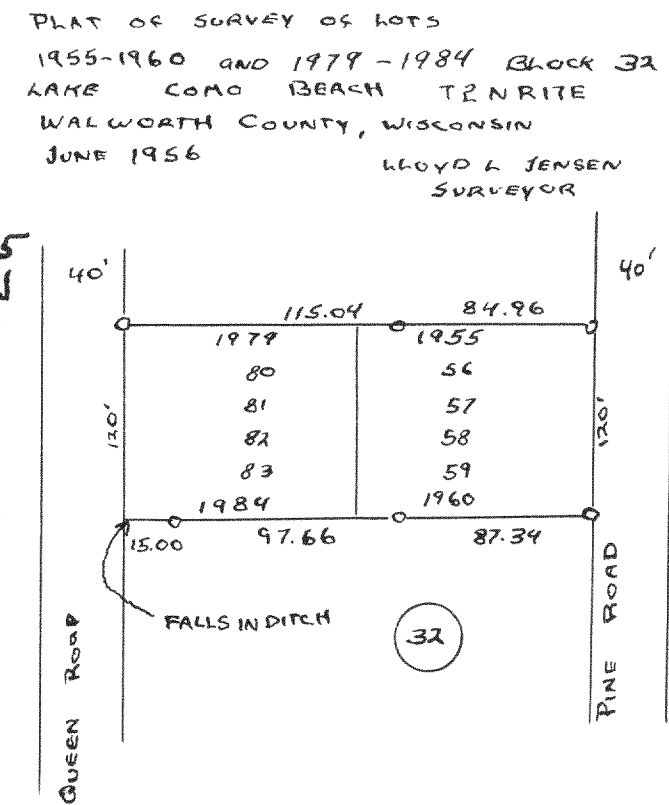 PLAT OF SURVEY OF LOTS
1955-1960 AND 1979-1984 BLOCK 32
LAKE COMO BEACH T2NR17E
WALWORTH COUNTY, WISCONSIN
JUNE 1956
LLOYD L JENSEN
SURVEYOR
5
40'
40'
115.04
84.96
1979
1955
80
56
81
57
120'
120'
82
58
83
59
1984
1960
15.00
97.66
87.34
FALLS IN DITCH
32
QUEEN ROAD
PINE ROAD